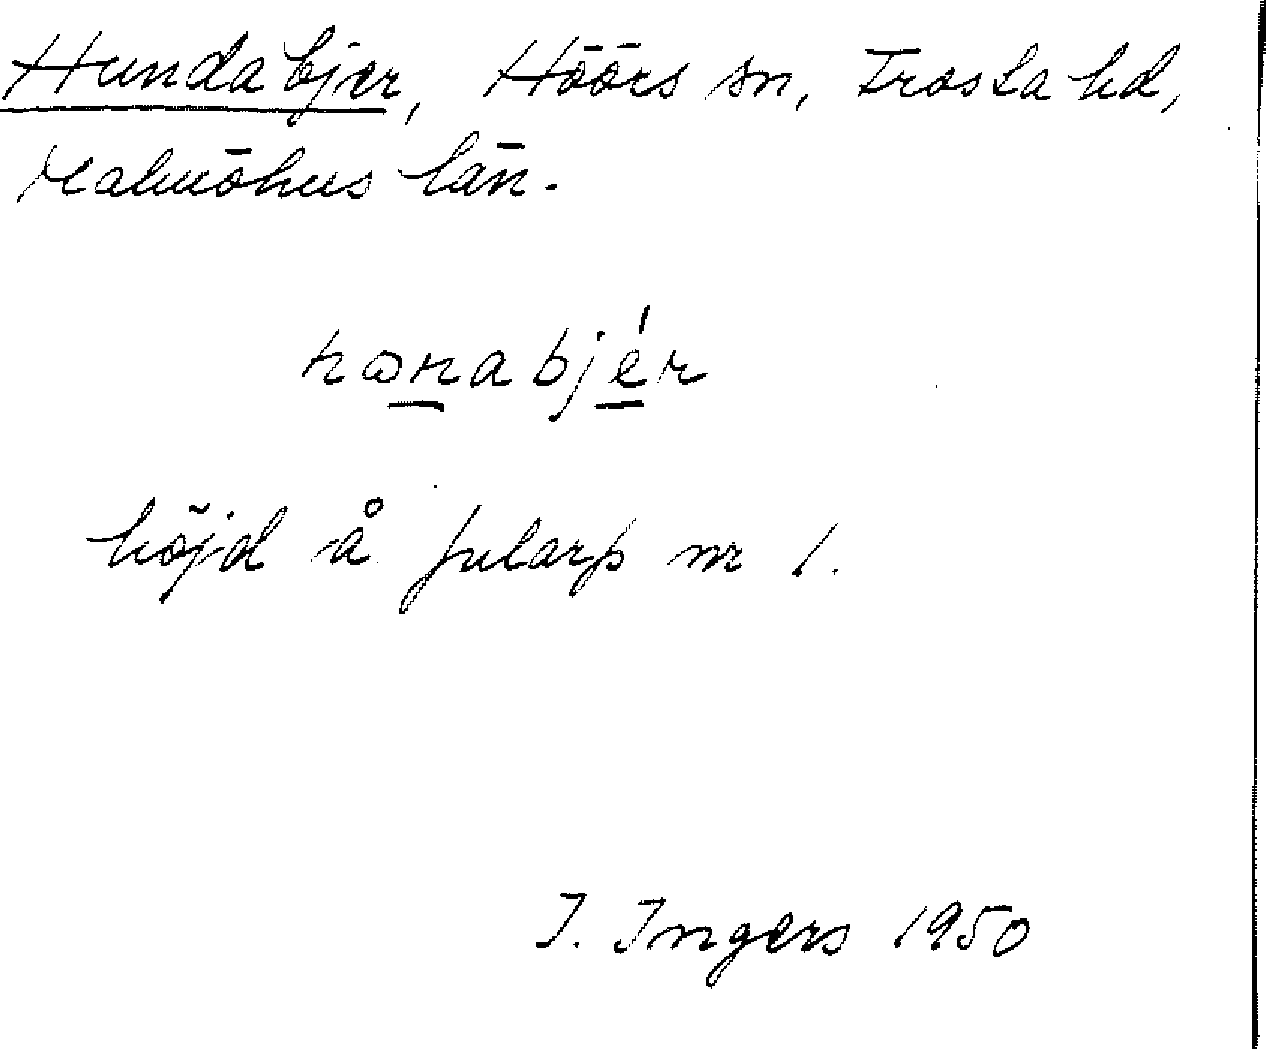 Hundabjer, Höörs sn, Frosta hd,
Malmöhus län.
hɷnabjér
höjd å Jularp nr 1.
I. Ingers 1950